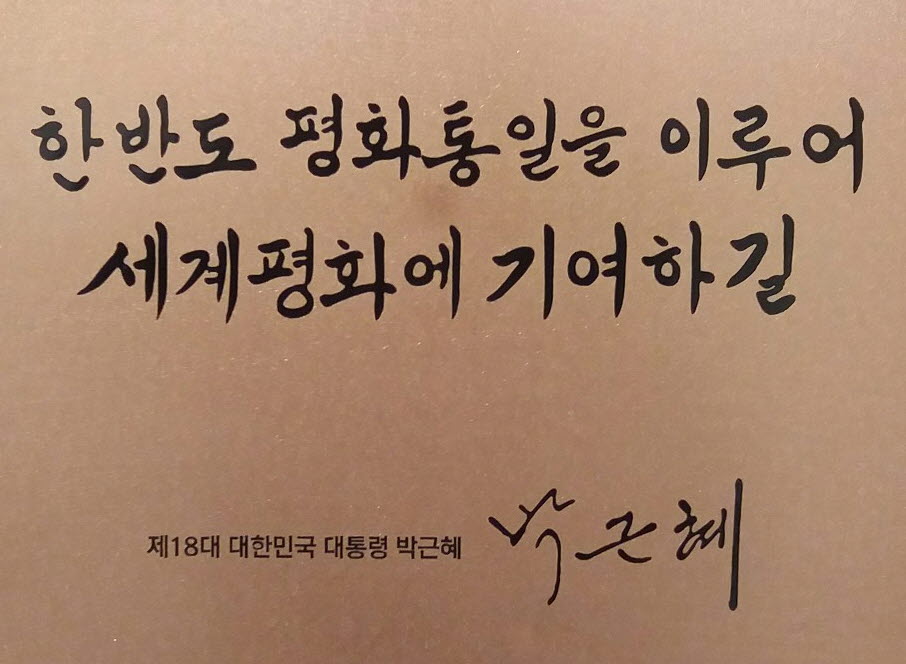 한반도 평화통일을 이루어
세계평화에 기여하길
제18대 대한민국 대통령 박근혜 박근혜